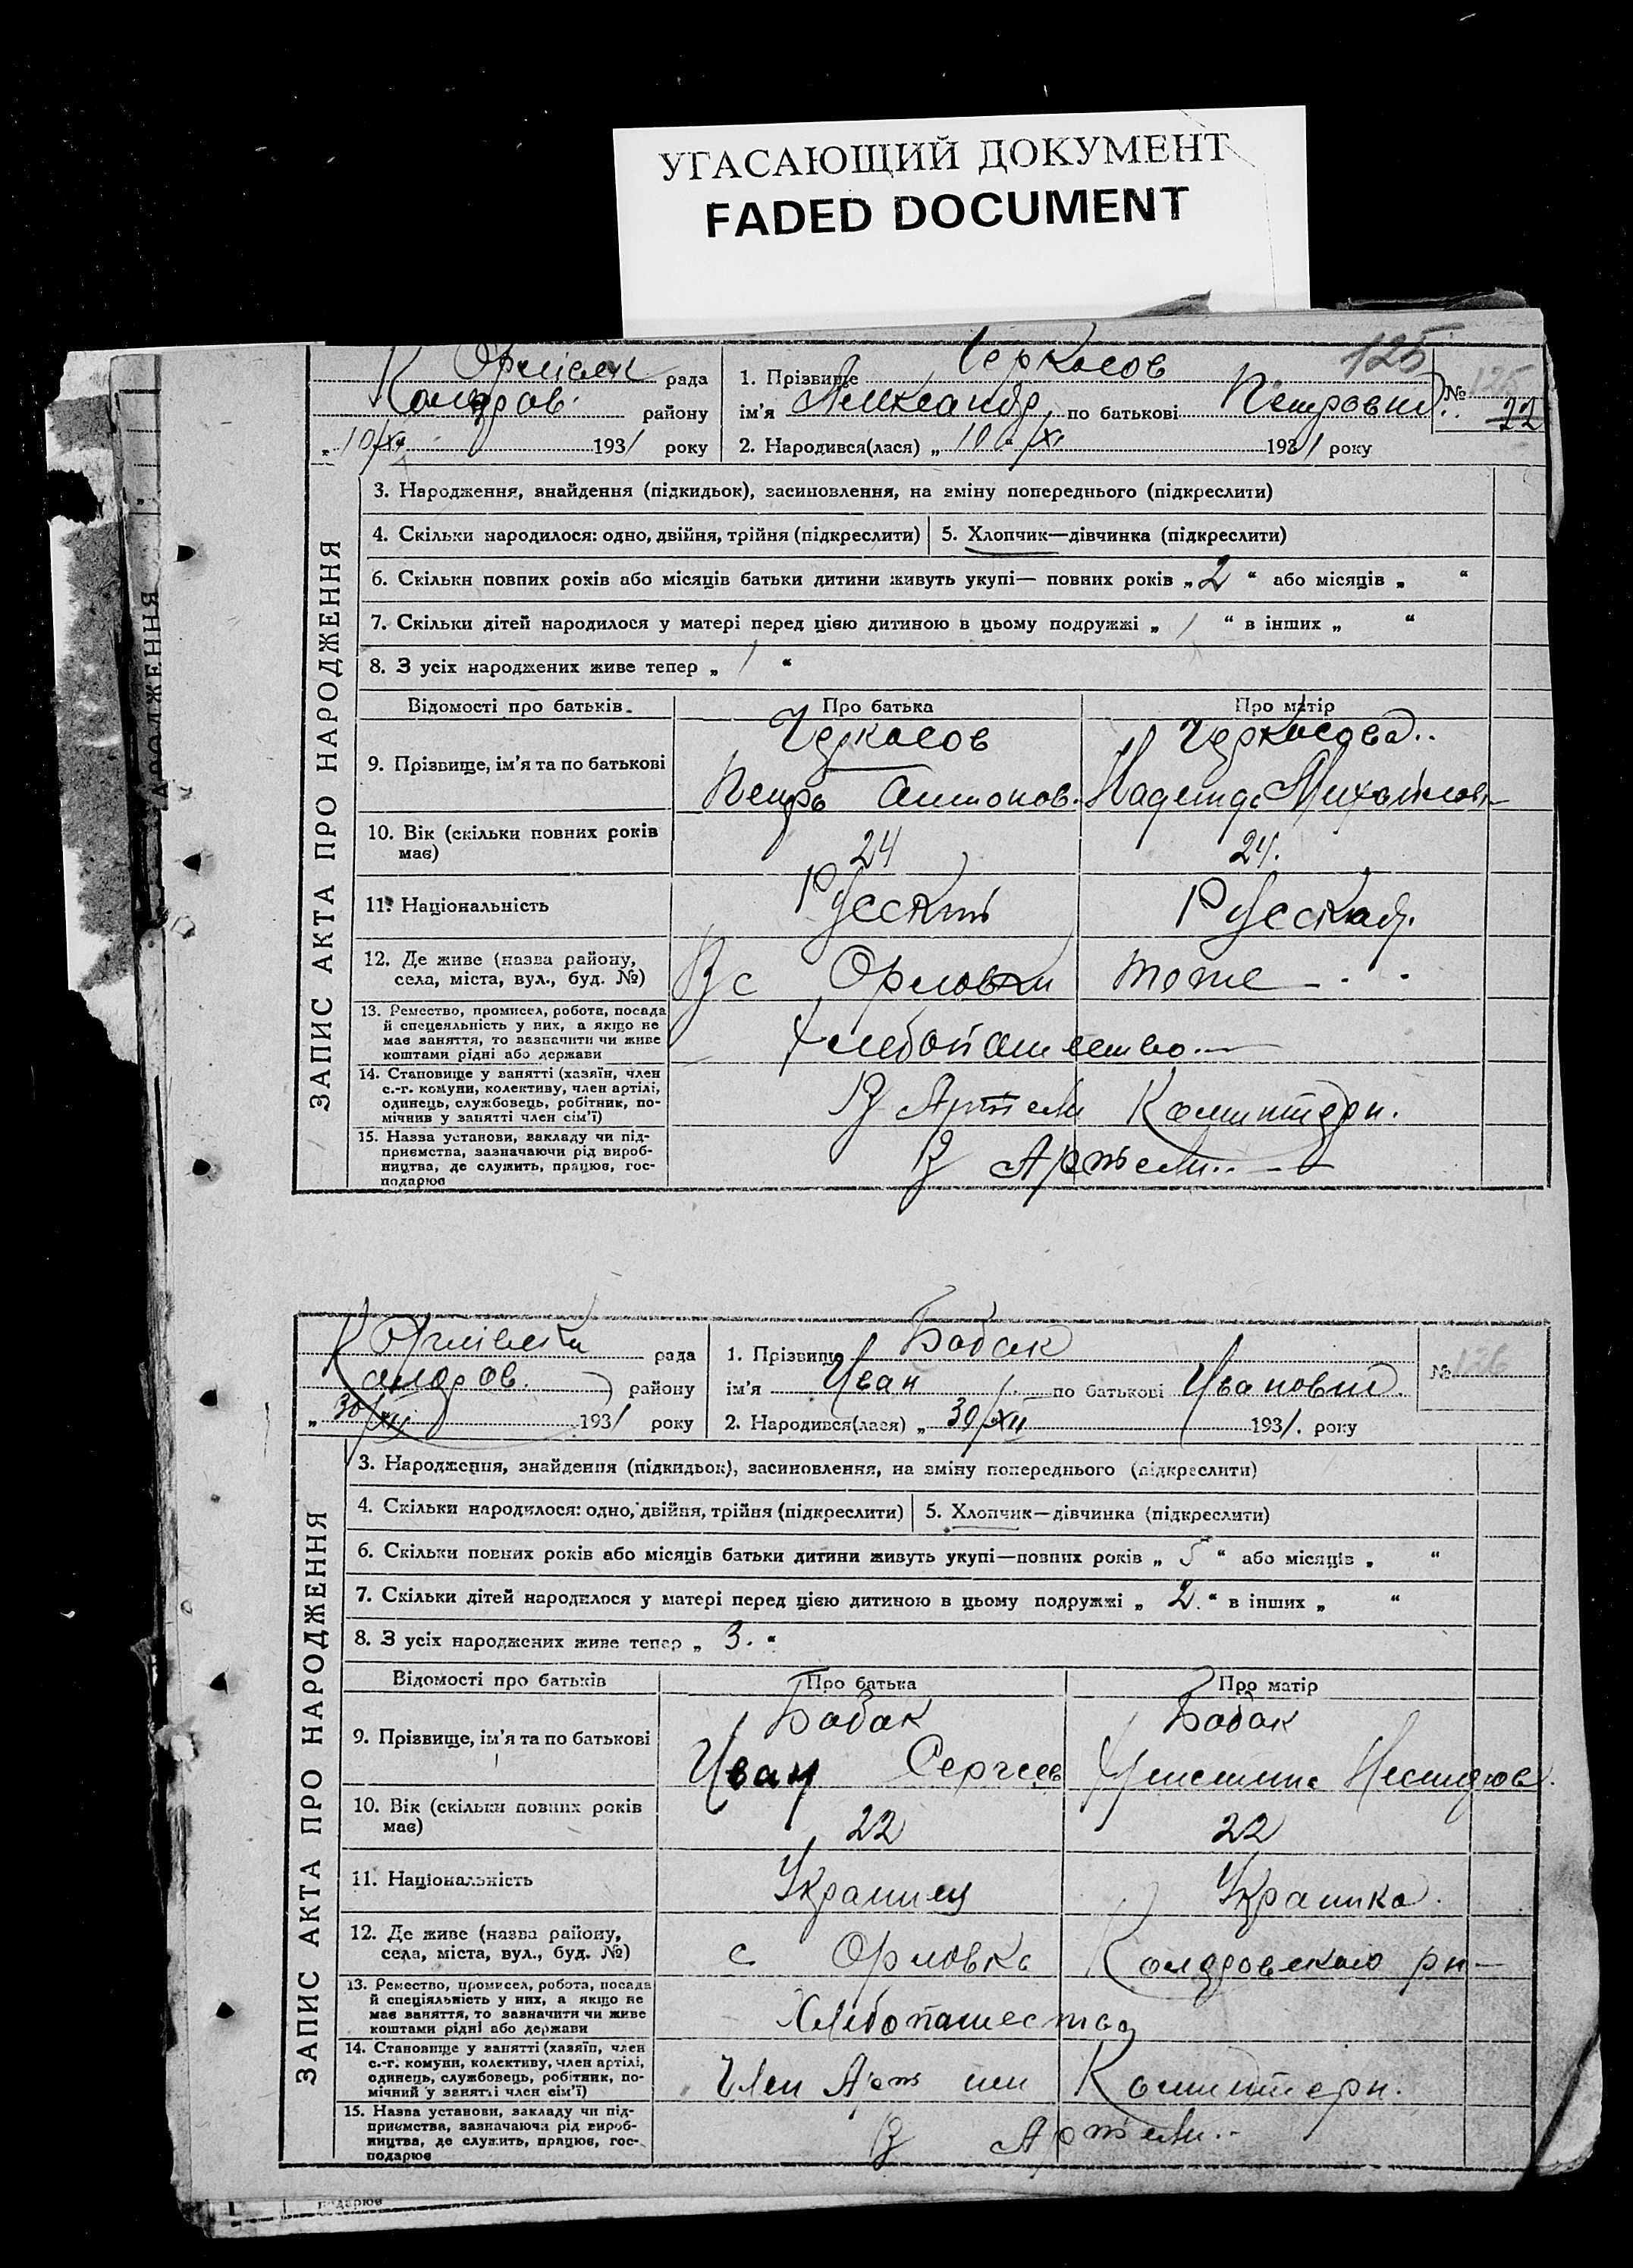 УГАСАЮЩИЙ ДОКУМЕНТ
FADED DOCUMENT
125
рада
району
„10/XI 1931 року
1. Прізвище Черкасов
ім'я Александр по батькові Петрович
2. Народився(лася) „10“/XI 1931 року
№ 125
22
ЗАПИС АКТА ПРО НАРОДЖЕННЯ
3. Народження, знайдення (підкидьок), засиновлення, на зміну попереднього (підкреслити)
4. Скільки народилося: одно, двійня, трійня (підкреслити) 5. Хлопчик—дівчинка (підкреслити)
6. Скільки повних років або місяців батьки дитини живуть укупі— повних років „2“ або місяців „ “
7. Скільки дітей народилося у матері перед цією дитиною в цьому подружжі „1“ в інших „ “
8. З усіх народжених живе тепер „1“
Відомості про батьків. Про батька Про матір
9. Прізвище, ім'я та по батькові
Черкасов Черкасова..
Петро Антонов. Надежда Михайлов
10. Вік (скільки повних років
має)
24 24.
11. Національність Русский Русская.
12. Де живе (назва району,
села, міста, вул., буд. №)
В с Орловки тоже
13. Ремество, промисел, робота, посада
й спецеяльність у них, а якщо не
має заняття, то зазначити чи живе
коштами рідні або держави
Хлебопашество.
14. Становище у занятті (хазяїн, член
с.-г. комуни, колективу, член артілі,
одинець, службовець, робітник, по-
мічник у занятті член сім'ї)
В Артели Коминтерн.
15. Назва установи, закладу чи під-
приємства, зазначаючи рід вироб-
ництва, де служить, працює, гос-
подарює
В Артели..
рада
району
„30/XII 1931 року
1. Прізвище Бабак
ім'я Иван по батькові Иванович
2. Народився(лася) „30/XII 1931. року
№ 126
ЗАПИС АКТА ПРО НАРОДЖЕННЯ
3. Народження, знайдення (підкидьок), засиновлення, на зміну попереднього (підкреслити)
4. Скільки народилося: одно, двійня, трійня (підкреслити) 5. Хлопчик—дівчинка (підкреслити)
6. Скільки повних років або місяців батьки дитини живуть укупі—повних років „5“ або місяців „ “
7. Скільки дітей народилося у матері перед цією дитиною в цьому подружжі „2.“ в інших „ “
8. З усіх народжених живе тепер „3.“
Відомості про батьків Про батька Про матір
9. Прізвище, ім'я та по батькові
Бабак Бабак
Иван Сергеев
10. Вік (скільки повних років
має)
22 22
11. Національність Украинец Украинка.
12. Де живе (назва району,
села, міста, вул., буд. №)
с. Орловка
13. Ремество, промисел, робота, посада
й спеціяльність у них, а якщо не
має заняття, то зазначити чи живе
коштами рідні або держави
Хлебопашество
14. Становище у занятті (хазяїн, член
с.-г. комуни, колективу, член артілі,
одинець, службовець, робітник, по-
мічний у занятті член сім'ї)
Член Артели Коминтерн.
15. Назва установи, закладу чи під-
приємства, зазначаючи рід вироб-
ництва, де служить, працює, гос-
подарює
В Артели..
подарює